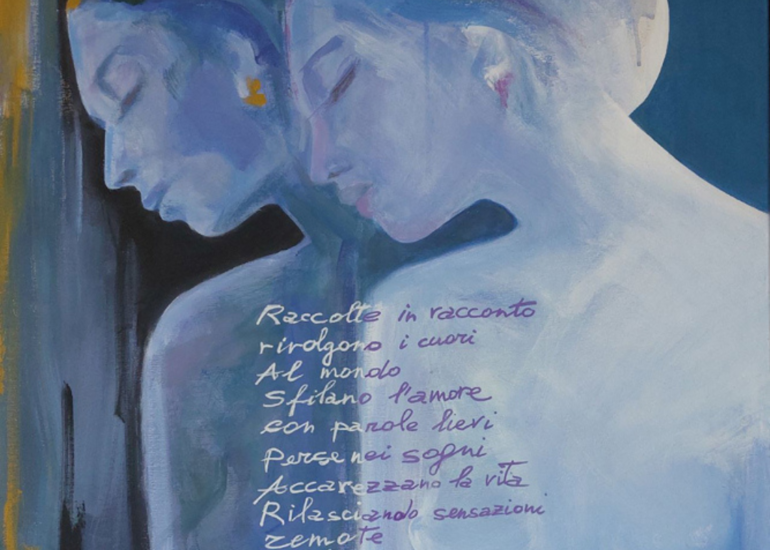 Raccolte in racconto
rivolgono i cuori
Al mondo
Sfilano l'amore
con parole lievi
Perse nei sogni
Accarezzano la vita
Rilasciando sensazioni
remote